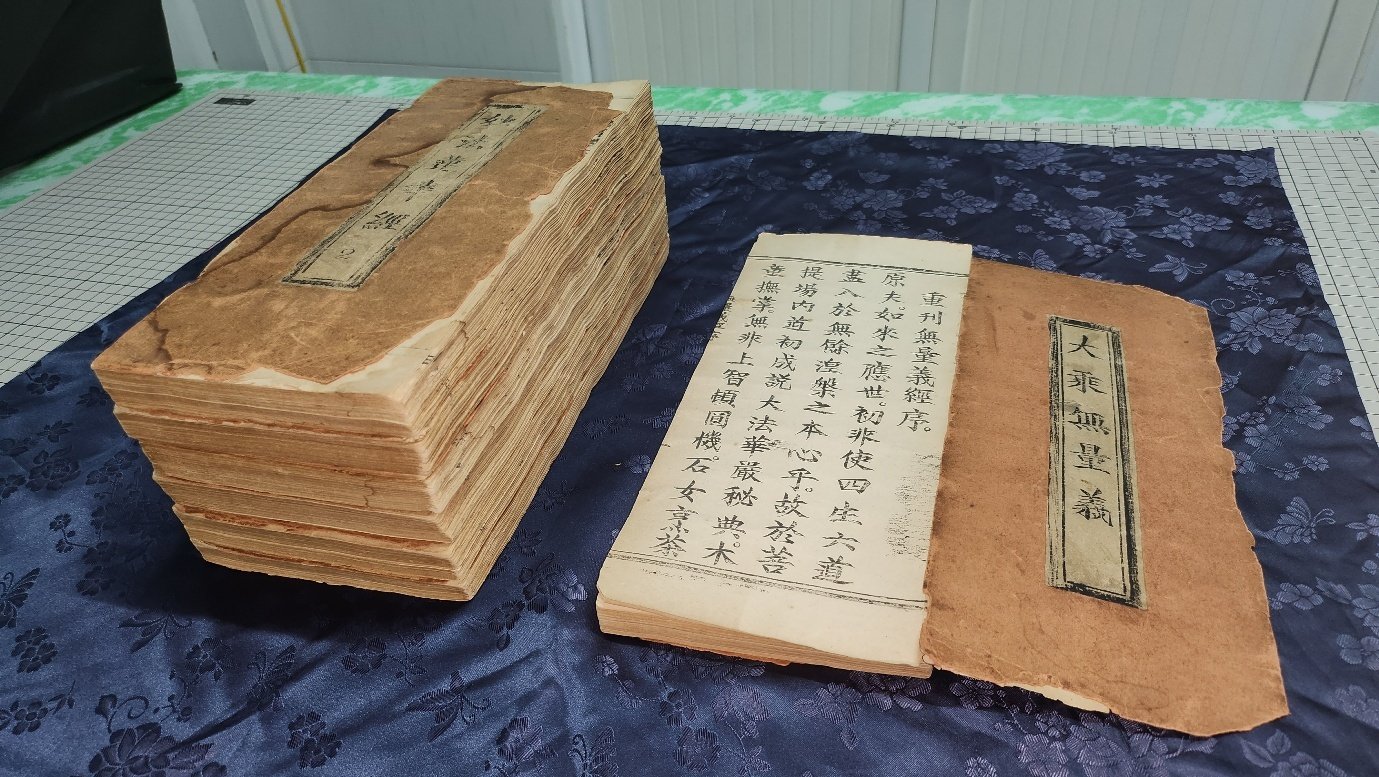 妙法蓮華經 2
大乘無量義
重刊無量義經序。
原夫。如來之應世。初非使四生六道
盡入於無餘涅槃之本心乎。故於菩
提場內道初成説大法華嚴秘典。木
童撫掌。無非上智頓圓機。石女烹茶